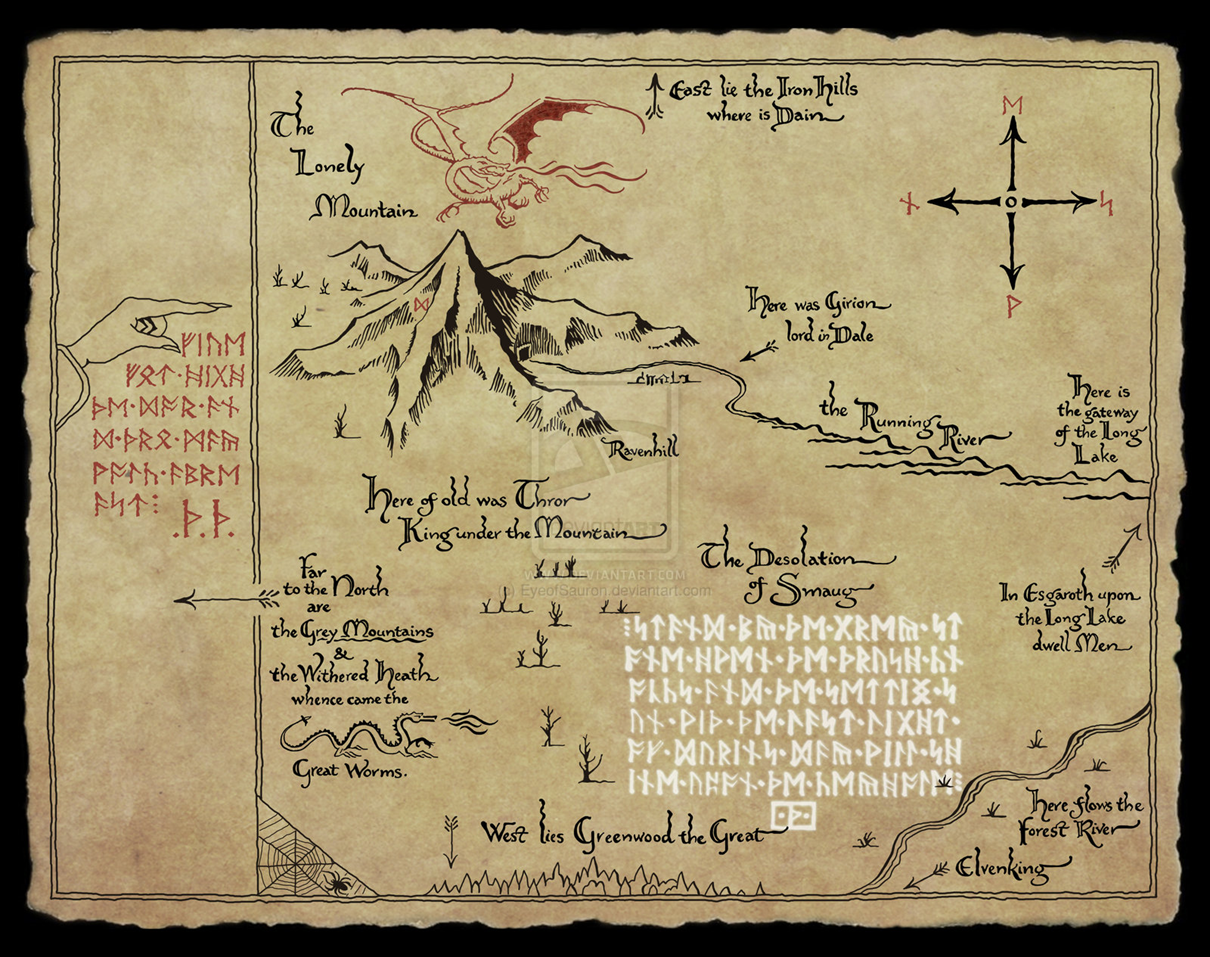 The
Lonely
Mountain
East lie the Iron Hills
where is Dain
ᛖ
ᚾ
ᛋ
ᚹ
ᛞ
Here was Girion
lord in Dale
the Running
River
Here is
the gateway
of the Long
Lake
Ravenhill
ᚠᛁᚢᛖ
ᚠᚩᛏ᛫ᚻᛁᚷᚻ
ᚦᛖ᛫ᛞᚩᚱ᛫ᚪᚾ
ᛞ᛫ᚦᚱᛟ᛫ᛗᚪᚣ
ᚹᚪᛚᚳ᛫ᚪᛒᚱᛖ
ᚪᛋᛏ:
.ᚦ.ᚦ.
Here of old was Thror
King under the Mountain
The Desolation
of Smaug
Far
to the North
are
the Grey Mountains
&
the Withered Heath
whence came the
Great Worms.
In Esgaroth upon
the Long Lake
dwell Men
ᛋᛏᚪᚾᛞ᛫ᛒᚣ᛫ᚦᛖ᛫ᚷᚱᛖᚣ᛫ᛋᛏ
ᚩᚾᛖ᛫ᚻᚹᛖᚾ᛫ᚦᛖ᛫ᚦᚱᚢᛋᚻ᛫ᚳᚾ
ᚩᚳᚳᛋ᛫ᚪᚾᛞ᛫ᚦᛖ᛫ᛋᛖᛏᛏᛁᛝ᛫ᛋ
ᚢᚾ᛫ᚹᛁᚦ᛫ᚦᛖ᛫ᛚᚪᛋᛏ᛫ᛚᛁᚷᚻᛏ᛫
ᚩᚠ᛫ᛞᚢᚱᛁᚾᛋ᛫ᛞᚪᚣ᛫ᚹᛁᛚᛚ᛫ᛋᚻ
ᛁᚾᛖ᛫ᚢᛈᚩᚾ᛫ᚦᛖ᛫ᚳᛖᚣᚻᚩᛚᛖ
West lies Greenwood the Great
Here flows the
Forest River
Elvenking
(c) EyeofSauron.deviantart.com